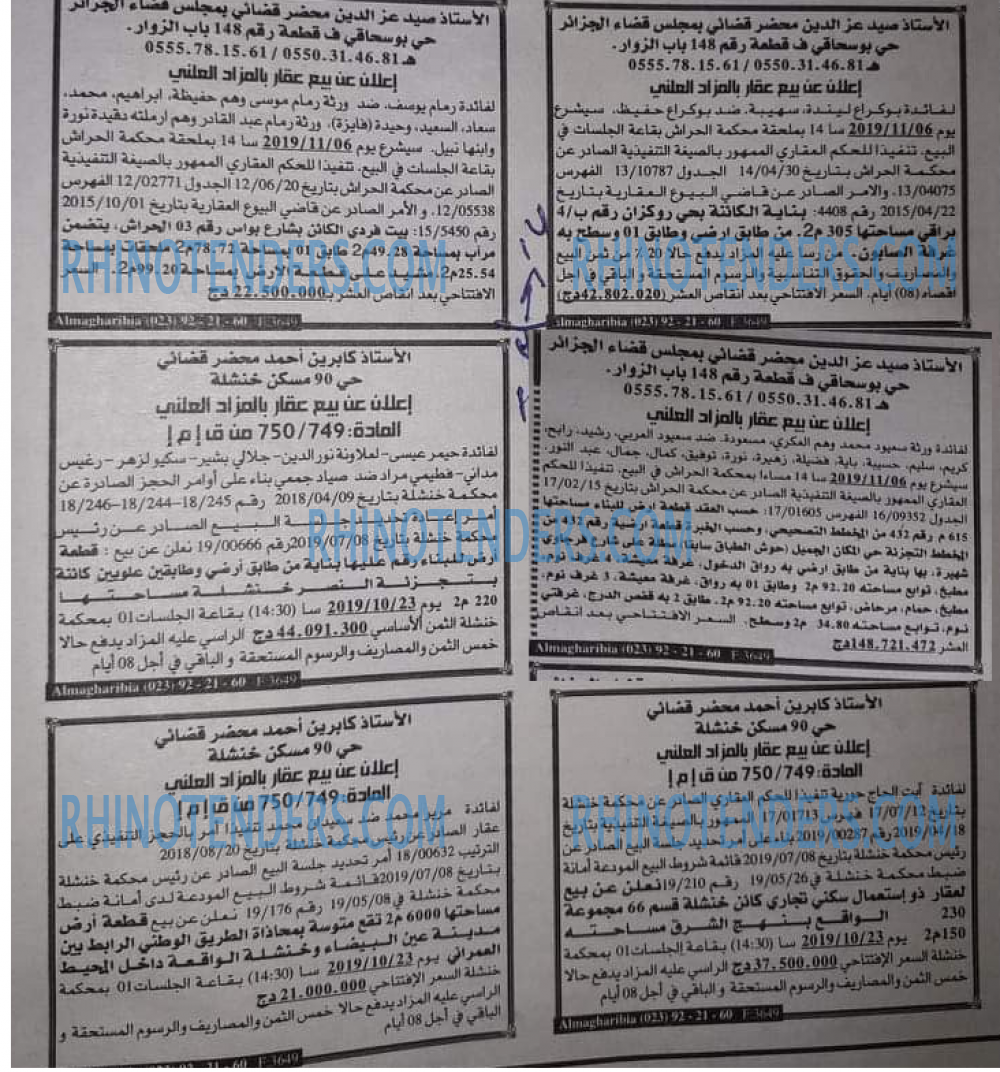 الأستاذ صيد عز الدين محضر قضائي بمجلس قضاء الجزائر
حي بوسحاقي ف قطعة رقم 148 باب الزوار.
هـ 0550.31.46.81 / 0555.78.15.61
إعلان عن بيع عقار بالمزاد العلني
لفائدة بوكراع ليندة، سهيبة. ضد بوكراع حفيظ، سيشرع
يوم 2019/11/06 سا 14 بملحقة محكمة الحراش بقاعة الجلسات في
البيع. تنفيذا للحكم العقاري الممهور بالصيغة التنفيذية الصادر عن
محكمة الحراش بتاريخ 14/04/30 الجدول 13/10787 الفهرس
13/04075. والامر الصادر عن قاضي البيوع العقارية بتاريخ
2015/04/22 رقم 4408: بناية الكائنة بحي روكزان رقم ب/4
براقي مساحتها 305 م2. من طابق ارضي وطابق 01 وسطح به
غرفة الصابون. من رسا عليه المزاد يدفع حالا 20% من ثمن البيع
والمصاريف والحقوق التناسبية والرسوم المستحقة و الباقي في أجل
اقصاه (08) ايام. السعر الافتتاحي بعد انقاص العشر (42.802.020دج)
Almagharibia (023) 92 - 21 - 60 F-3649
الأستاذ صيد عز الدين محضر قضائي بمجلس قضاء الجزائر
حي بوسحاقي ف قطعة رقم 148 باب الزوار.
هـ 0550.31.46.81 / 0555.78.15.61
إعلان عن بيع عقار بالمزاد العلني
لفائدة رمام يوسف. ضد ورثة رمام موسى وهم حفيظة، ابراهيم، محمد،
سعاد، السعيد، وحيدة (فايزة). ورثة رمام عبد القادر وهم ارملته دقيدة نورة
وابنها نبيل. سيشرع يوم 2019/11/06 سا 14 بملحقة محكمة الحراش
بقاعة الجلسات في البيع. تنفيذا للحكم العقاري الممهور بالصيغة التنفيذية
الصادر عن محكمة الحراش بتاريخ 12/06/20 الجدول 12/02771 الفهرس
12/05538. و الأمر الصادر عن قاضي البيوع العقارية بتاريخ 2015/10/01
رقم 15/5450: بيت فردي الكائن بشارع بواس رقم 03 الحراش، يتضمن
مرآب بمساحة 49.28م2 طابق 01 بمساحة 78.72م2 ملحقات بمساحة
25.54م2. مشيد على قطعة الارض بمساحة 99.20م2. السعر
الافتتاحي بعد انقاص العشر بـ22.500.000دج
Almagharibia (023) 92 - 21 - 60 F-3649
RHINOTENDERS.COM
RHINOTENDERS.COM
الأستاذ صيد عز الدين محضر قضائي بمجلس قضاء الجزائر
حي بوسحاقي ف قطعة رقم 148 باب الزوار.
هـ 0550.31.46.81 / 0555.78.15.61
إعلان عن بيع عقار بالمزاد العلني
لفائدة ورثة سعيود محمد وهم العكري، مسعودة. ضد سعيود العربي، رشيد، رابح،
كريم، سليم، حسيبة، باية، فضيلة، زهيرة، نورة، توفيق، كمال، جمال، عبد النور.
سيشرع يوم 2019/11/06 سا 14 مساءا بمحكمة الحراش في البيع. تنفيذا للحكم
العقاري الممهور بالصيغة التنفيذية الصادر عن محكمة الحراش بتاريخ 17/02/15
الجدول 16/09352 الفهرس 17/01605: حسب العقد قطعة ارض للبناء مساحتها
615 م رقم 432 من المخطط التصحيحي، وحسب الخبرة قطعة ارضية رقم 432 من
المخطط التجزئة حي المكان الجميل (حوش الطباق سابقا)
شهيرة، بها بناية من طابق ارضي به رواق الدخول، غرفة معيشة، 4 غرف نوم،
مطبخ، توابع مساحته 92.20 م2 وطابق 01 به رواق، غرفة معيشة، 3 غرف نوم،
مطبخ، حمام، مرحاض، توابع مساحته 92.20 م2. طابق 2 به قفص الدرج، غرفتي
نوم، توابع مساحته 34.80 م2 وسطح. السعر الافتتاحي بعد انقاص
العشر 148.721.472دج
Almagharibia (023) 92 - 21 - 60 F-3649
الأستاذ كابرين أحمد محضر قضائي
حي 90 مسكن خنشلة
إعلان عن بيع عقار بالمزاد العلني
المادة: 750/749 من ق إ م إ
لفائدة حيمر عيسى-لعلاونة نور الدين-جلالي بشير- سكيو لزهر- رغيس
مداني- فطيمي مراد ضد صياد جمعي بناء على أوامر الحجز الصادرة عن
محكمة خنشلة بتاريخ 2018/04/09 رقم 18/245-18/244-18/246
جلسة البيع الصادر عن رئيس
محكمة خنشلة بتاريخ 2019/07/08رقم 19/00666 نعلن عن بيع : قطعة
أرض للبناء رقم عليها بناية من طابق أرضي وطابقين علويين كائنة
بتجزئة النصر خنشلة مساحتها
220 م2 يوم 2019/10/23 سا (14:30) بقاعة الجلسات01 بمحكمة
خنشلة الثمن الأساسي 44.091.300دج الراسي عليه المزاد يدفع حالا
خمس الثمن والمصاريف والرسوم المستحقة و الباقي في أجل 08 أيام
Almagharibia (023) 92 - 21 - 60 F-3649
RHINOTENDERS.COM
الأستاذ كابرين أحمد محضر قضائي
حي 90 مسكن خنشلة
إعلان عن بيع عقار بالمزاد العلني
المادة: 750/749 من ق إ م إ
لفائدة آيت الحاج حورية تنفيذا للحكم العقاري الصادر عن محكمة خنشلة
فهرس 17/01713 الممهور بالصيغة التنفيذية بتاريخ
2019/04/18 رقم 2019/00287 بناء على أمر تحديد جلسة البيع الصادر عن
رئيس محكمة خنشلة بتاريخ 2019/07/08 قائمة شروط البيع المودعة أمانة
ضبط محكمة خنشلة في 19/05/26 رقم 19/210 نعلن عن بيع
لعقار ذو إستعمال سكني تجاري كائن خنشلة قسم 66 مجموعة
230 الواقع بنهج الشرق مساحته
150م2 يوم 2019/10/23 سا (14:30) بقاعة الجلسات01 بمحكمة
خنشلة السعر الإفتتاحي 37.500.000دج الراسي عليه المزاد يدفع حالا
خمس الثمن والمصاريف والرسوم المستحقة و الباقي في أجل 08 أيام
Almagharibia (023) 92 - 21 - 60 F-3649
الأستاذ كابرين أحمد محضر قضائي
حي 90 مسكن خنشلة
إعلان عن بيع عقار بالمزاد العلني
المادة: 750/749 من ق إ م إ
لفائدة مزيز محمد ضد سعيدي محمد تنفيذا أمر بالحجز التنفيذي على
عقار الصادر عن رئيس محكمة خنشلة بتاريخ 2018/08/20
الترتيب 18/00632 أمر تحديد جلسة البيع الصادر عن رئيس محكمة خنشلة
بتاريخ 2019/07/08 قائمة شروط البيع المودعة لدى أمانة ضبط
محكمة خنشلة في 19/05/08 رقم 19/176 نعلن عن بيع قطعة أرض
مساحتها 6000 م2 تقع متوسة بمحاذاة الطريق الوطني الرابط بين
مدينة عين البيضاء وخنشلة الواقعة داخل المحيط
العمراني يوم 2019/10/23 سا (14:30) بقاعة الجلسات01 بمحكمة
خنشلة السعر الإفتتاحي 21.000.000 دج
الراسي عليه المزاد يدفع حالا خمس الثمن والمصاريف والرسوم المستحقة و
الباقي في أجل 08 أيام
92 - 21 - 60 F-3649
RHINOTENDERS.COM
RHINOTENDERS.COM